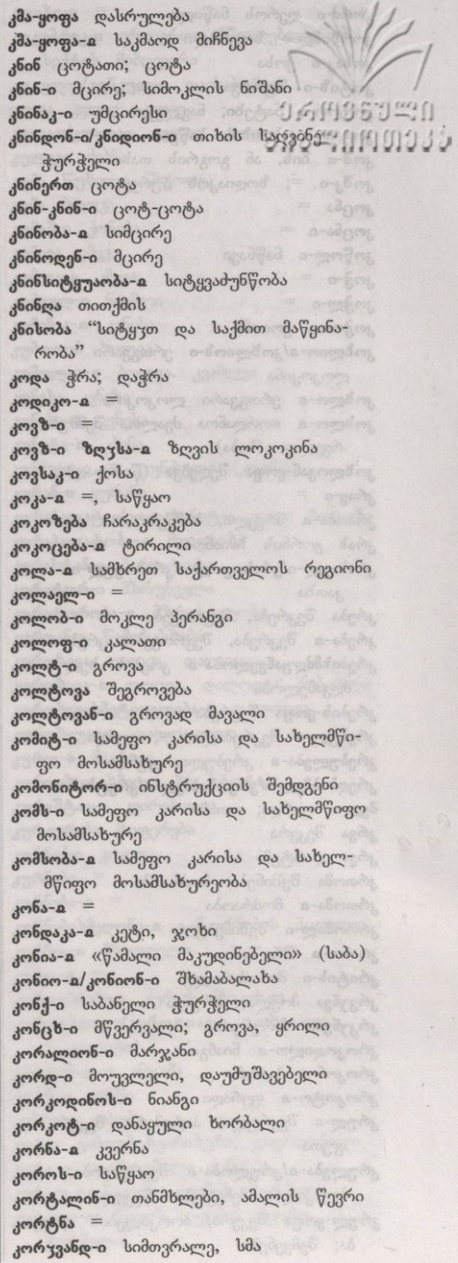 კმა-ყოფა დასრულება
კშა-ყოფა-ჲ საკმაოდ მიჩნევა
კნინ ცოტათი; ცოტა
კნინ-ი მცირე; სიმოკლის ნიშანი
კნინაკ-ი უმცირესი
კნინდონ-ი/კნიდიონ-ი თიხის საღვინე
ჭურჭელი
კნინერთ ცოტა
კნინ-კნინ-ი ცოტ-ცოტა
კნინობა-ჲ სიმცირე
კნინოდენ-ი მცირე
კნინსიტყუაობა-ჲ სიტყვაძუნწობა
კნინღა თითქმის
კნისობა “სიტყჳთ და საქმით მაწყინა-
რობა”
კოდა ჭრა; დაჭრა
კოდიკო-ჲ =
კოვზ-ი =
კოვზ-ი ზღჳსა-ჲ ზღვის ლოკოკინა
კოვსაკ-ი ქოსა
კოკა-ჲ =, საწყაო
კოკოზება ჩარაკრაკება
კოკოცება-ჲ ტირილი
კოლა-ჲ სამხრეთ საქართველოს რეგიონი
კოლაელ-ი =
კოლობ-ი მოკლე პერანგი
კოლოფ-ი კალათი
კოლტ-ი გროვა
კოლტოვა შეგროვება
კოლტოვან-ი გროვად მავალი
კომიტ-ი სამეფო კარისა და სახელმწი-
ფო მოსამსახურე
კომონიტორ-ი ინსტრუქციის შემდგენი
კომს-ი სამეფო კარისა და სახელმწიფო
მოსამსახურე
კომსობა-ჲ სამეფო კარისა და სახელ-
მწიფო მოსამსახურეობა
კონა-ჲ =
კონდაკა-ჲ კეტი, ჯოხი
კონია-ჲ «წამალი მაკუდინებელი» (საბა)
კონიო-ჲ/კონიონ-ი შხამაბალახა
კონქ-ი საბანელი ჭურჭელი
კონცხ-ი მწვერვალი; გროვა, ყრილი
კორალიონ-ი მარჯანი
კორდ-ი მოუვლელი, დაუმუშავებელი
კორკოდინოს-ი ნიანგი
კორკოტ-ი დანაყული ხორბალი
კორნა-ჲ კვერნა
კოროს-ი საწყაო
კორტალინ-ი თანმხლები, ამალის წევრი
კორტნა =
კორჳვანდ-ი სიმთვრალე, სმა